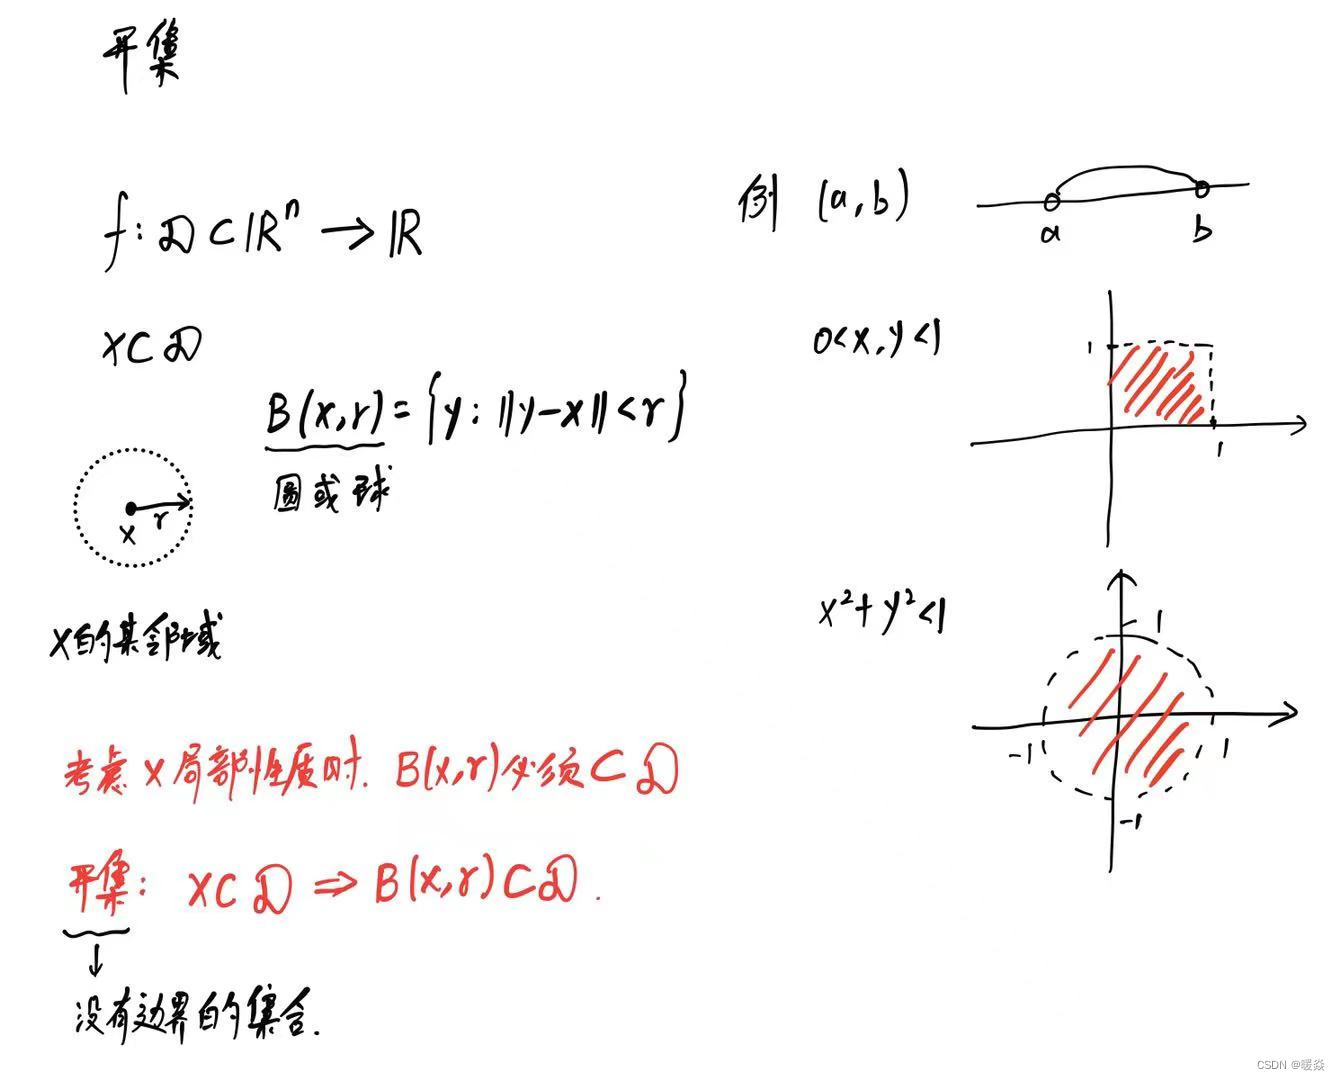 开集
f: D⊂ℝⁿ → ℝ
x⊂D
B(x,r) = {y: ‖y-x‖<r}
圆或球
x
r
x的某邻域
考虑x局部性质时. B(x,r)必须⊂D
开集: x⊂D ⇒ B(x,r)⊂D.
↓
没有边界的集合.
例 (a,b)
a
b
0<x,y<1
1
1
x²+y²<1
1
-1
1
-1
CSDN @暖焱